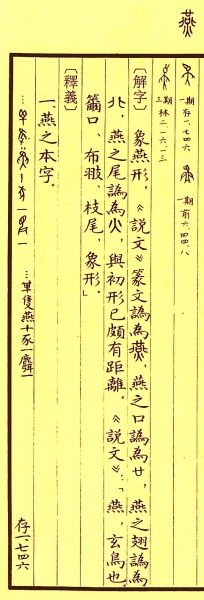 燕
一期存一、七四六
一期前六、四四、八
三期林二、一六、一三
〔解字〕象燕形,《說文》篆文譌為燕,燕之口譌為廿,燕之翅譌為
北,燕之尾譌為火,與初形已頗有距離。《說文》:「燕,玄鳥也。
籋口、布翄、枝尾,象形」
〔釋義〕
一、燕之本字。
…單隻燕十豕一麑一 存一、七四六